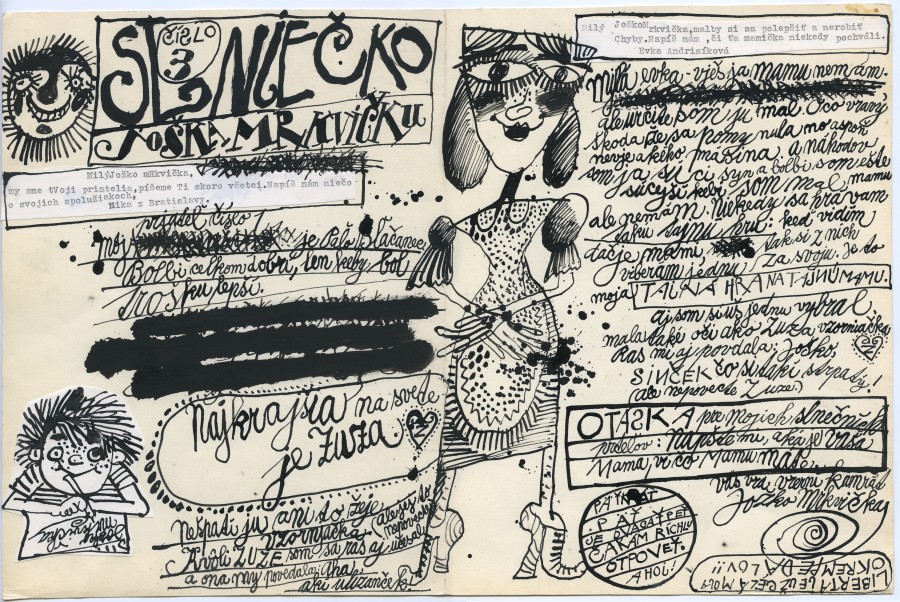 ČÍSLO
3
SLNIEČKO
JOŠKA MRKVIČKU
Milý Joško mRkvička,
my sme tVoji priatelia,píšeme Ti skoro všetci.Napíš nám niečo
o svojich spolužiakoch,
Nika z Bratislavy
priateľ číslo 1
mój je Palo Blačanec
Bolbi celkom dobrí, len keby bol
trošku lepší.
Najkrajšia na svede
je Zuza
Neškadí ju ani to že je
vzorniačka
Kvôli ZUZE som sa ras aj učesal
ale jej to nepovedz
a ona my povedala: Aha
aki ulizanček!
Milý JoškoM rkvička,malby si sa polepšiť a nerobiť
Chyby.Napíš nám ,či ťa mamička niekedy pochváli.
Evka Andrisíková
Milá evka - vješ ja Mamu nemám.
ale určite som ju mal. Oco vravý
škoda že sa pomy nula no aspoň
nevje akého mašina, a náhodov
som ja su ci syn a bolbi som ešte
súcyší kebi som mal mamu
ale nemám. Niekedy sa hrávam
takú tajnú hru: keď vidím
dačje mami, tak si z nich
viberam jednu za svoju. Je to
moja TAJNÁ HRA NA TAJNÚ MAMU.
aj som si už jednu vybral
mala také oči ako Zuza vzorniačka
Ras mi aj povdala: Joško,
SINČEK čo si taki strpatý!
(ale nepovečte Zuze)
OTÁSKA pre mojich slnečních
priatelov: Napíšte mi, aká je vaša
Mama, vi čo Mamu máte.
váš vrá. verni kamrát
Jožko Mrkvička
PÄŤKRÁT
PÄŤ
JE DVACAŤPEŤ
ČAKÁM RICHLU
OTPOVEŤ.
AHOJ!